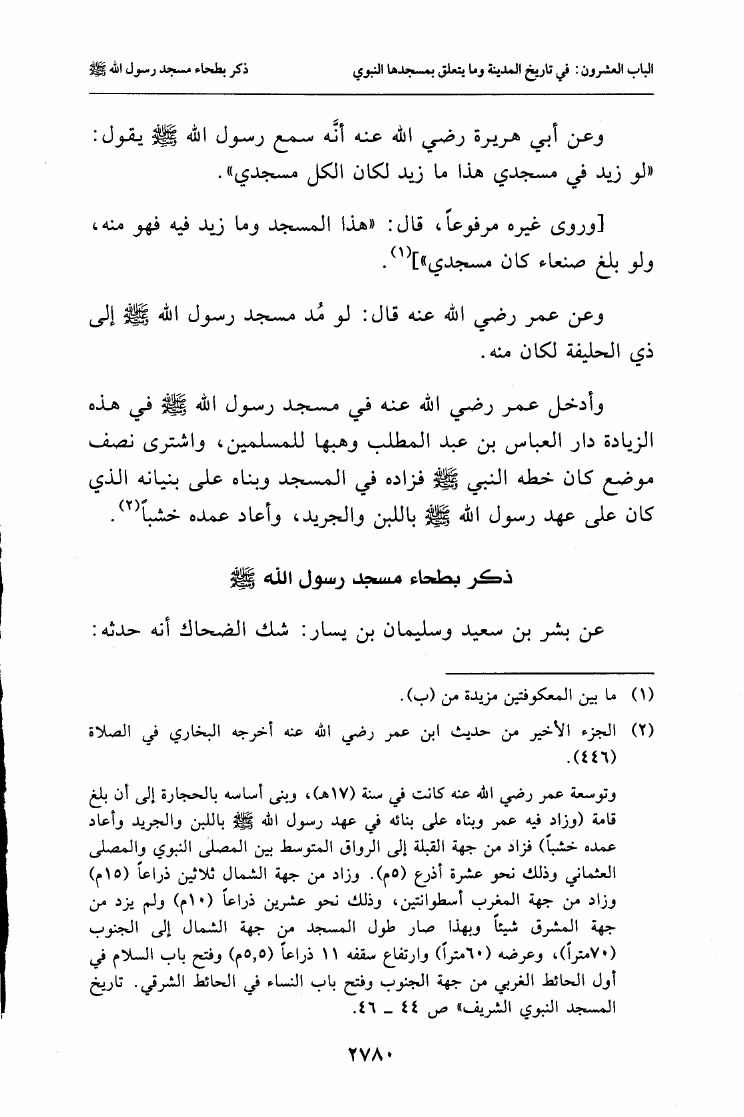 الباب العشرون: في تاريخ المدينة وما يتعلق بمسجدها النبوي ذكر بطحاء مسجد رسول الله ﷺ
وعن أبي هريرة رضي الله عنه أنَّه سمع رسول الله ﷺ يقول:
«لو زيد في مسجدي هذا ما زيد لكان الكل مسجدي».
[وروى غيره مرفوعاً، قال: «هذا المسجد وما زيد فيه فهو منه،
ولو بلغ صنعاء كان مسجدي»](١).
وعن عمر رضي الله عنه قال: لو مُد مسجد رسول الله ﷺ إلى
ذي الحليفة لكان منه.
وأدخل عمر رضي الله عنه في مسجد رسول الله ﷺ في هذه
الزيادة دار العباس بن عبد المطلب وهبها للمسلمين، واشترى نصف
موضع كان خطه النبي ﷺ فزاده في المسجد وبناه على بنيانه الذي
كان على عهد رسول الله ﷺ باللبن والجريد، وأعاد عمده خشباً(٢).
ذكر بطحاء مسجد رسول الله ﷺ
عن بشر بن سعيد وسليمان بن يسار: شك الضحاك أنه حدثه:
(١) ما بين المعكوفتين مزيدة من (ب).
(٢) الجزء الأخير من حديث ابن عمر رضي الله عنه أخرجه البخاري في الصلاة
(٤٤٦).
وتوسعة عمر رضي الله عنه كانت في سنة (١٧هـ)، وبنى أساسه بالحجارة إلى أن بلغ
قامة (وزاد فيه عمر وبناه على بنائه في عهد رسول الله ﷺ باللبن والجريد وأعاد
عمده خشباً) فزاد من جهة القبلة إلى الرواق المتوسط بين المصلى النبوي والمصلى
العثماني وذلك نحو عشرة أذرع (٥م). وزاد من جهة الشمال ثلاثين ذراعاً (١٥م)
وزاد من جهة المغرب أسطوانتين، وذلك نحو عشرين ذراعاً (١٠م) ولم يزد من
جهة المشرق شيئاً وبهذا صار طول المسجد من جهة الشمال إلى الجنوب
(٧٠متراً)، وعرضه (٦٠متراً) وارتفاع سقفه ١١ ذراعاً (٥,٥م) وفتح باب السلام في
أول الحائط الغربي من جهة الجنوب وفتح باب النساء في الحائط الشرقي. تاريخ
المسجد النبوي الشريف» ص ٤٤ - ٤٦.
٢٧٨٠